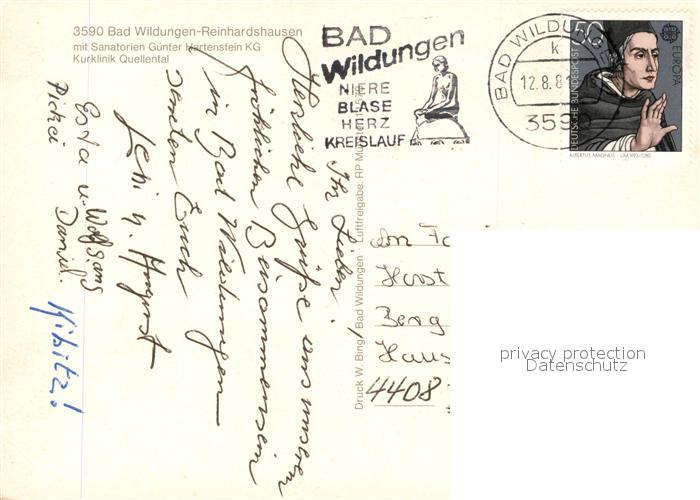 3590 Bad Wildungen-Reinhardshausen
mit Sanatorien Günter Hartenstein KG
Kurklinik Quellental
BAD
Wildungen
NIERE
BLASE
HERZ
KREISLAUF
BAD WILDUNGEN
k
12.8.81
3590
50
DEUTSCHE BUNDESPOST
EUROPA
ALBERTUS MAGNUS · UM 1193-1280
Ihr Lieben!
Herzliche Grüße aus unserem
fröhlichen Beisammensein
in Bad Wildungen
senden Euch
Leni u. August
Esta u. Wolfgang
Daniel.
Kibitz!
Druck W. Bing, Bad Wildungen · Luftfreigabe: RP
Horst
Berg
Haus
4408
privacy protection
Datenschutz